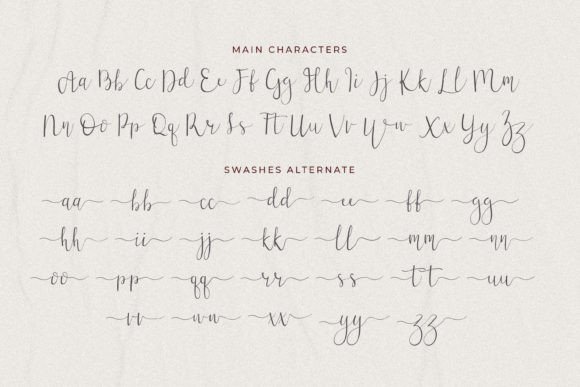 MAIN CHARACTERS
Aa Bb Cc Dd Ee Ff Gg Hh Ii Jj Kk Ll Mm
Nn Oo Pp Qq Rr Ss Tt Uu Vv Ww Xx Yy Zz
SWASHES ALTERNATE
aa bb cc dd ee ff gg
hh ii jj kk ll mm nn
oo pp qq rr ss tt uu
vv ww xx yy zz